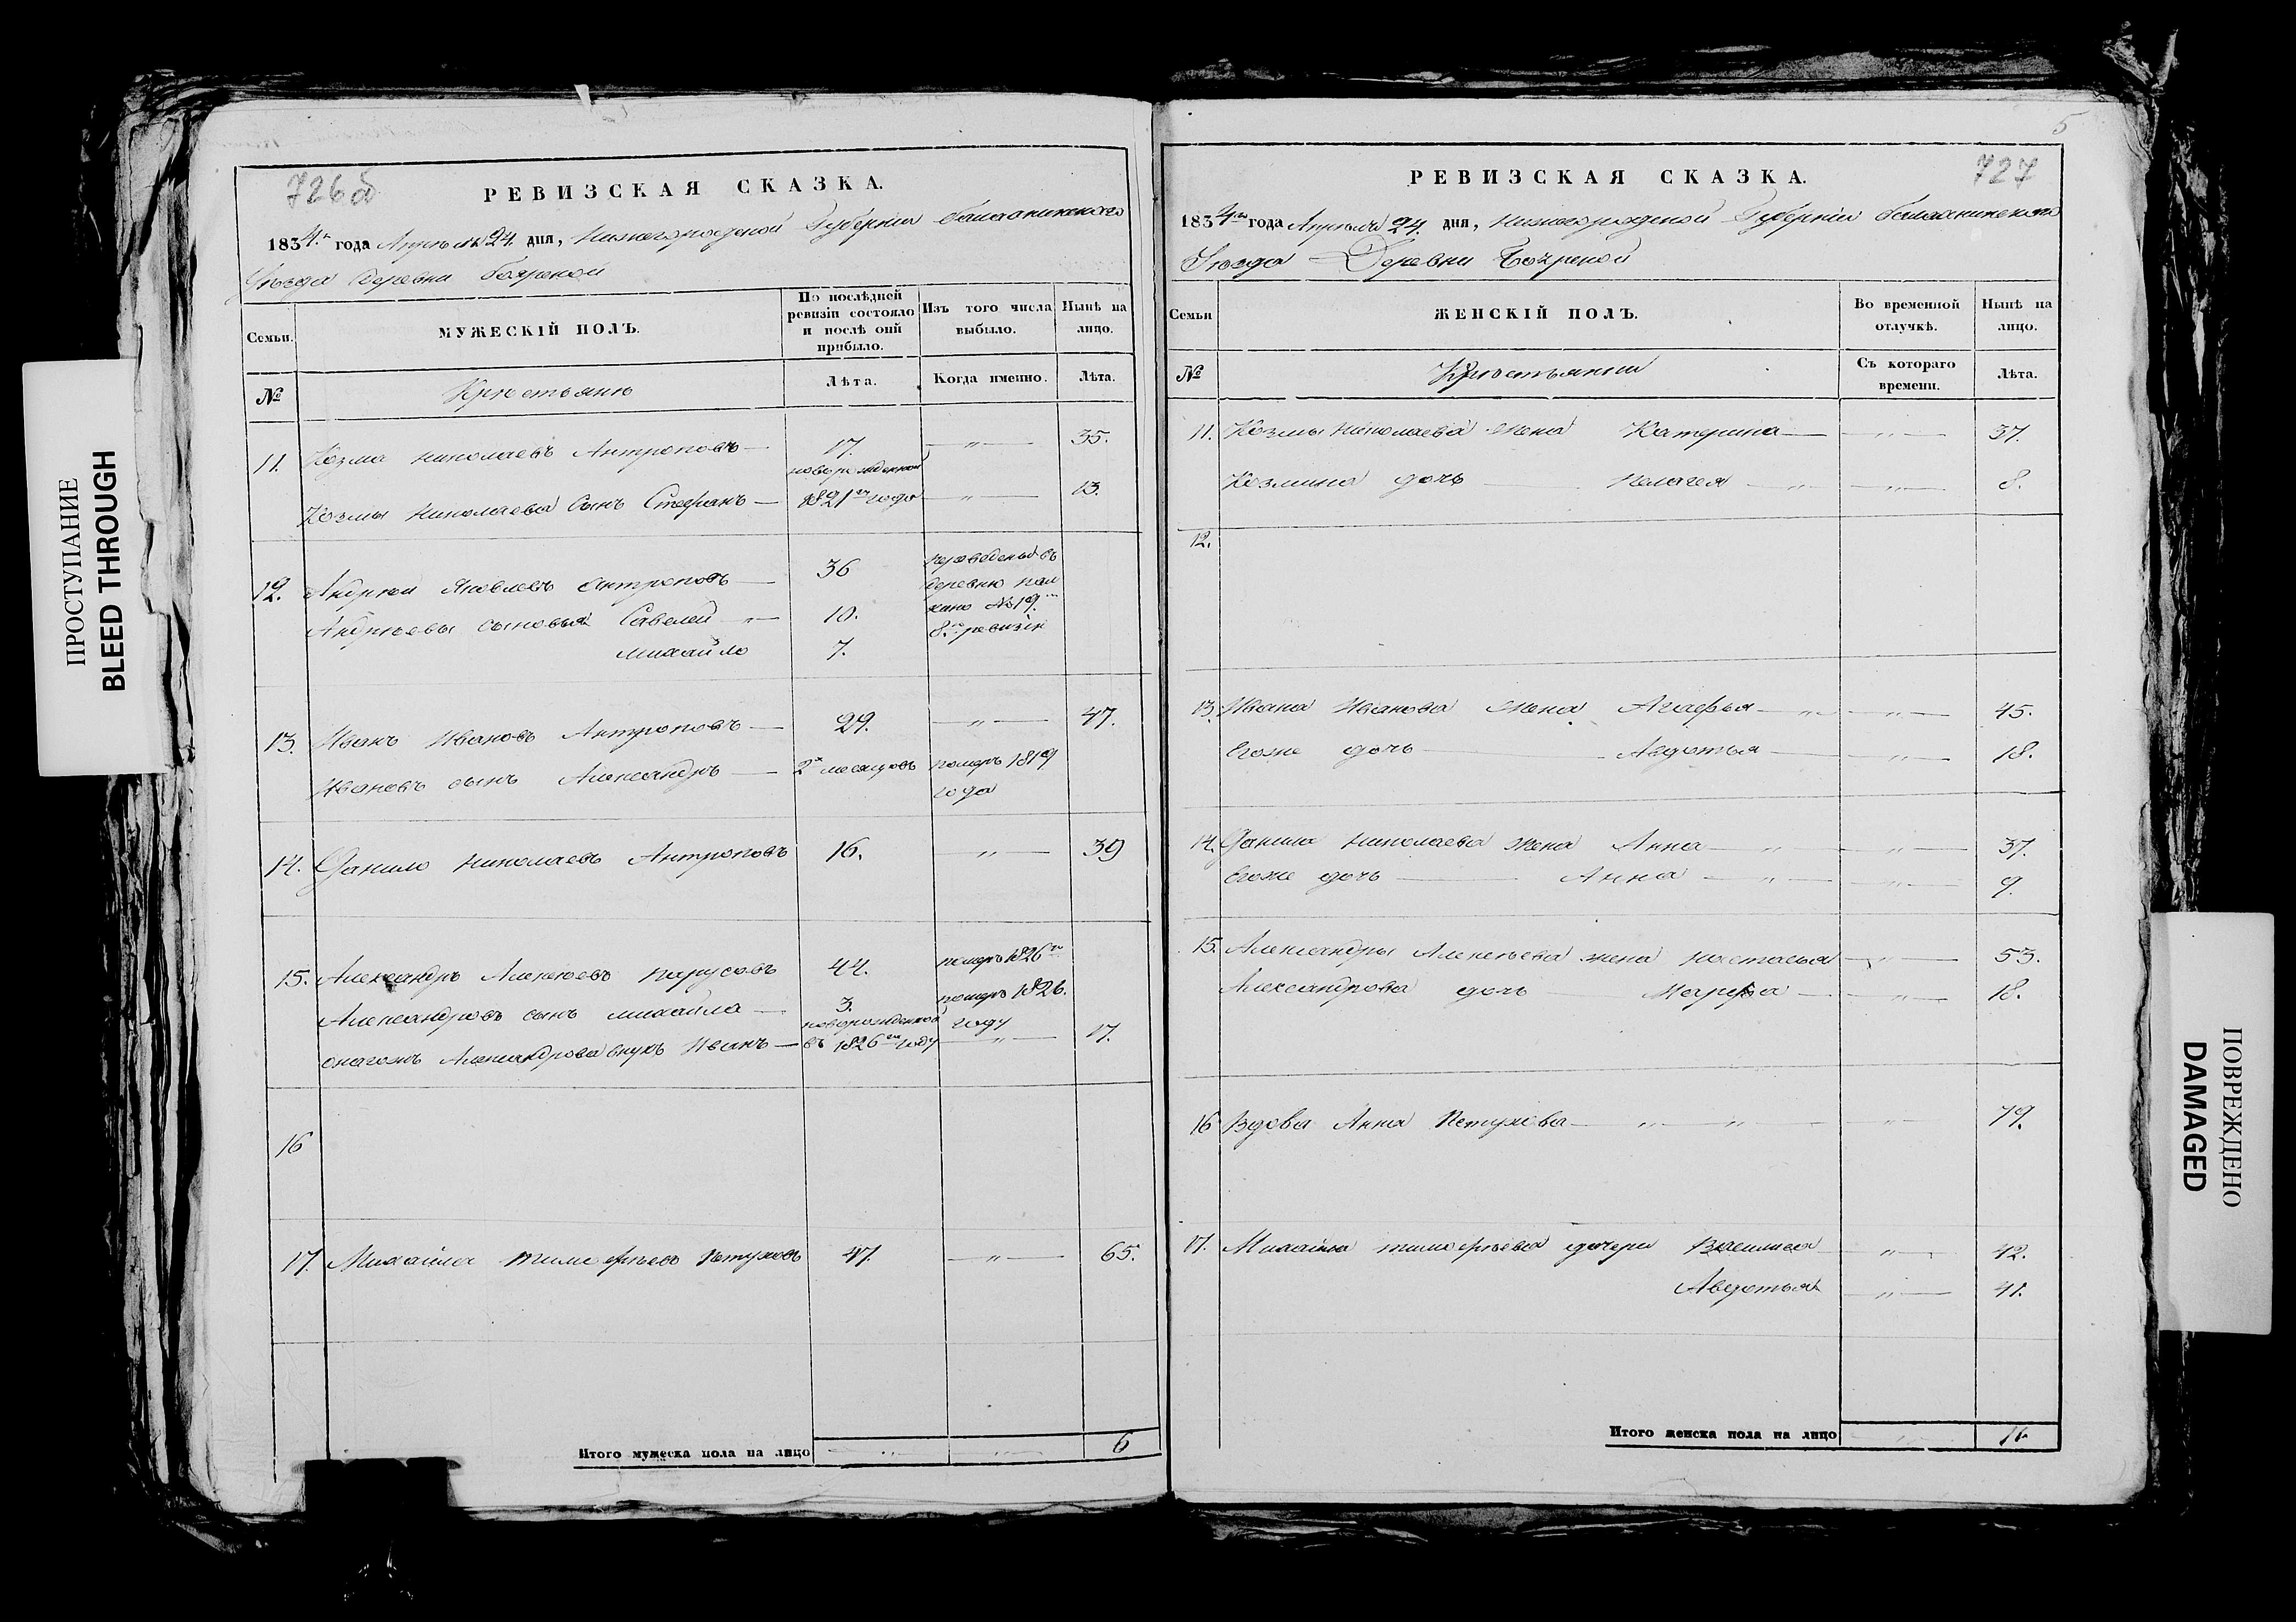 ПРОСТУПАНИЕ
BLEED THROUGH
726 об
РЕВИЗСКАЯ СКАЗКА.
1834.го года Апреля 24. дня, Нижегородской Губернiи Балахнинского
Уезда Деревни Боярской
Семьи.
МУЖЕСКIЙ ПОЛЪ.
По послѣдней ревизiи состояло и послѣ оній прибыло.
Изъ того числа выбыло.
Нынѣ на лицо.
№
Крестьяне
Лѣта.
Когда именно.
Лѣта.
11. Козма Николаевъ Антроповъ — 17. — „ — 35.
новорожденной
Козмы Николаева Сынъ Стефанъ — 1821го года — „ — 13.
12. Андреи Яковлевъ Антроповъ — 36 переведены въ
деревню
Андреевы сыновья Савелей — „ — 10. № 19.
8.й ревизiи
Михайло 7.
13. Иванъ Ивановъ Антроповъ — 29. — „ — 47.
Ивановъ сынъ Александръ — 2х месяцовъ померъ 1819
года
14. Данило Николаевъ Антроповъ 16. — „ — 39
15. Александръ Алексеевъ 44. померъ 1826го
Александровъ сынъ Михайла — 3. померъ 1826.
новорожденной году
онагожъ Александрова внукъ Иванъ — въ 1826го году — „ — 17.
16
17. Михайла Тимофеевъ Петуховъ 47. — „ — 65.
Итого мужеска пола на лицо — „ — — „ — 6
5
727
РЕВИЗСКАЯ СКАЗКА.
1834го года Апреля 24. дня, Нижегородской Губернiи Балахнинского
Уезда Деревни Боярской
Семьи
ЖЕНСКIЙ ПОЛЪ.
Во временной отлучкѣ.
Нынѣ на лицо.
№
Крестьянки
Съ котораго времени.
Лѣта.
11. Козмы Николаева Жена Катерина — — „ — 37.
Козмина дочь — Пелагея — „ — — „ — 8.
12.
13. Ивана Иванова Жена Агафья — „ — — „ — 45.
Егоже дочь — Авдотья — — „ — 18.
14. Данила Николаева Жена Анна — „ — — „ — 37.
Егоже дочь — Анна — „ — — „ — 9.
15. Александры Алексеева жена Настасья — „ — 53.
Александрова дочь — Марфа — — „ — 18.
16 Вдова Анна Петухова — „ — „ — — „ — 79.
17. Михайла тимофеева дочери Василиса — „ — 42.
Авдотья — „ — 41.
Итого женска пола на лицо — „ — 11.
ПОВРЕЖДЕНО
DAMAGED